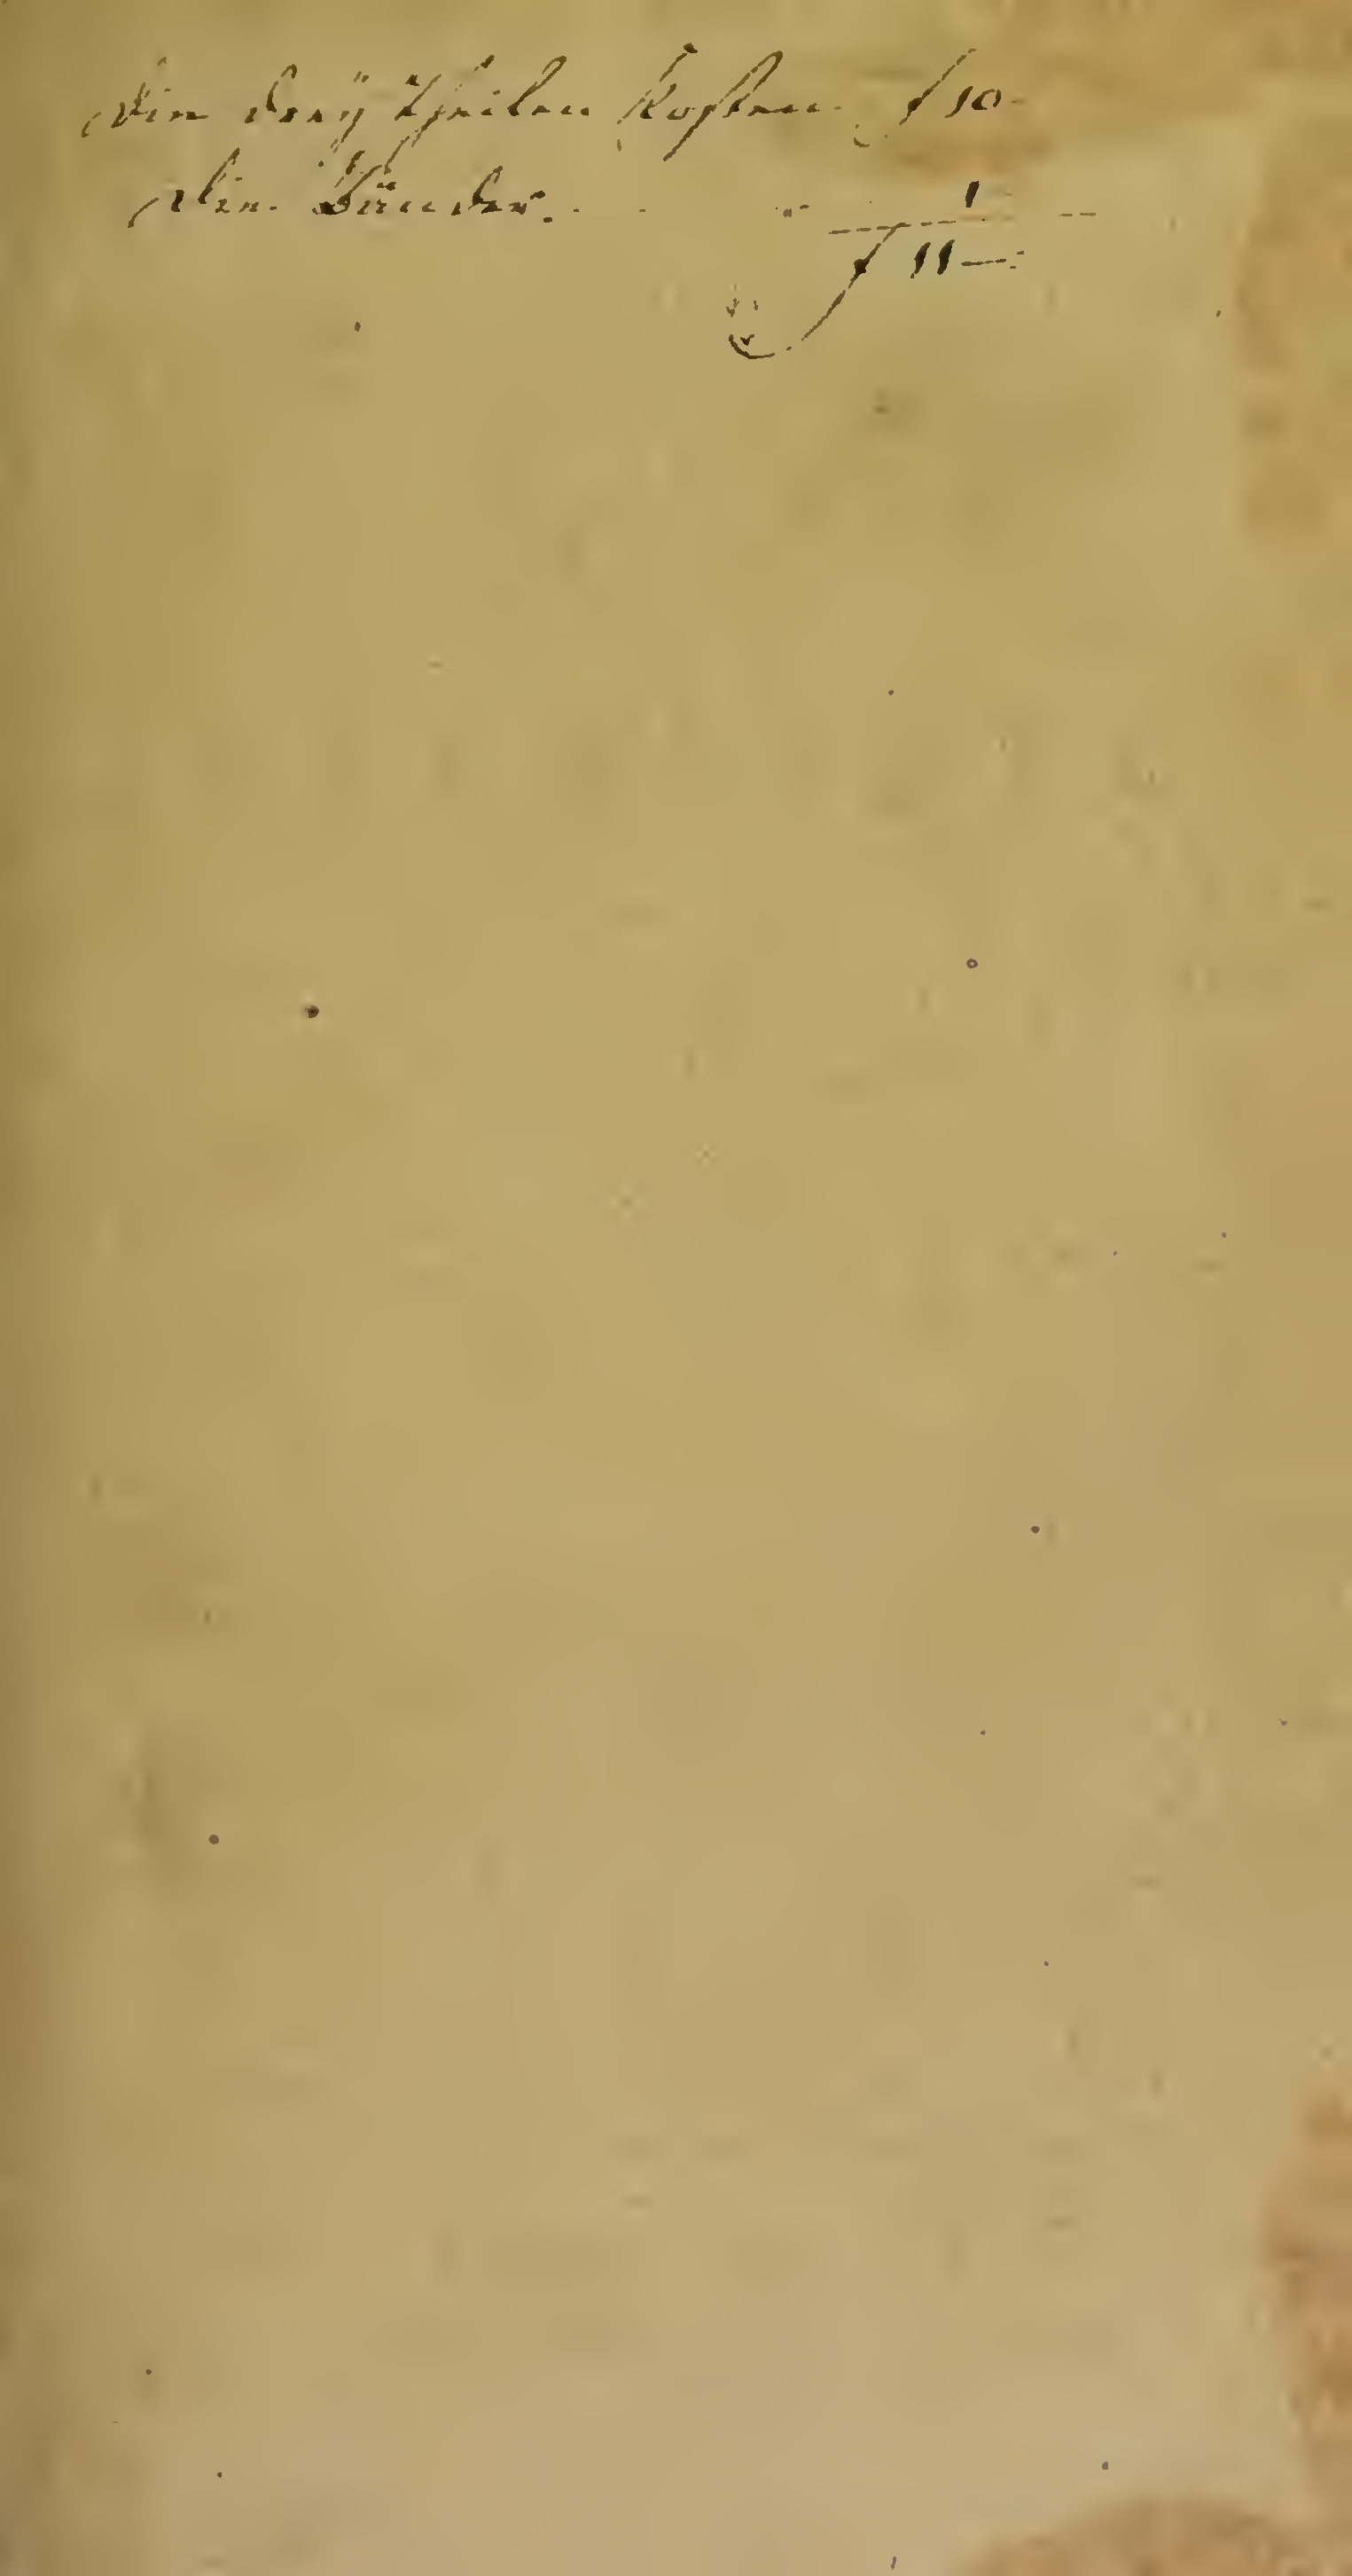 die dreÿ theilen kosten f 10
die Bänder. 1
f 11